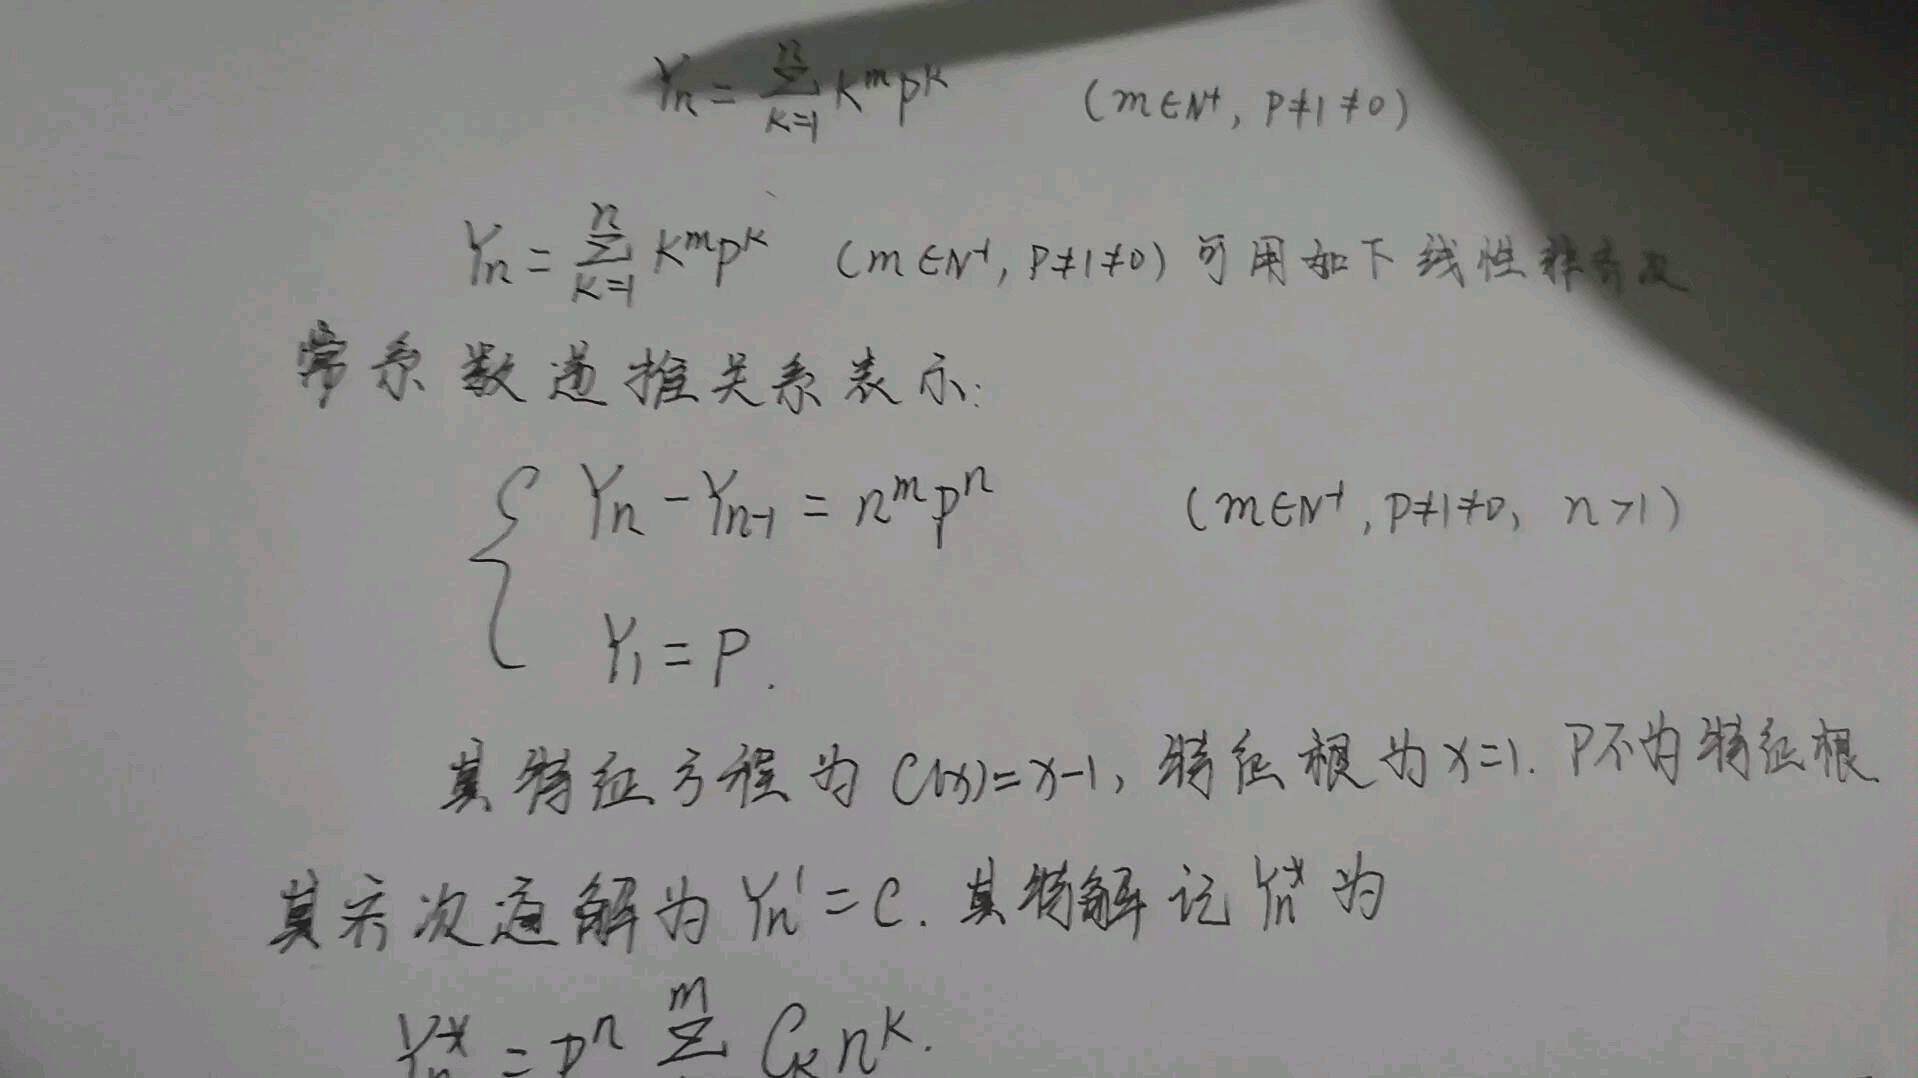 Yn = Σ_{k=1}^{n} k^m p^k (m∈N⁺, P≠1≠0)
Yn = Σ_{k=1}^{n} k^m p^k (m∈N⁺, P≠1≠0) 可用如下线性非齐次
常系数递推关系表示:
{ Yn - Yn-1 = n^m p^n (m∈N⁺, P≠1≠0, n>1)
Y1 = P.
其特征方程为 C(x)=x-1, 特征根为 x=1. P不为特征根
其齐次通解为 Yn' = C. 其特解记 Yn* 为
Yn* = P^n Σ^{m} Ck n^k.